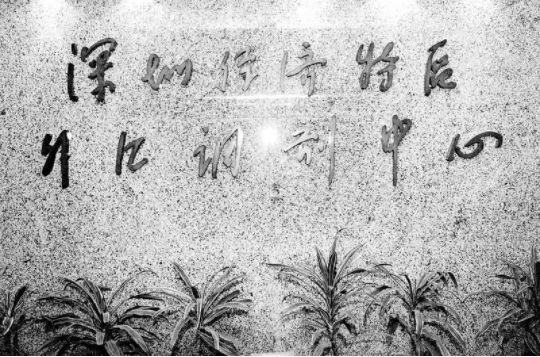 深圳经济特区
外汇调剂中心